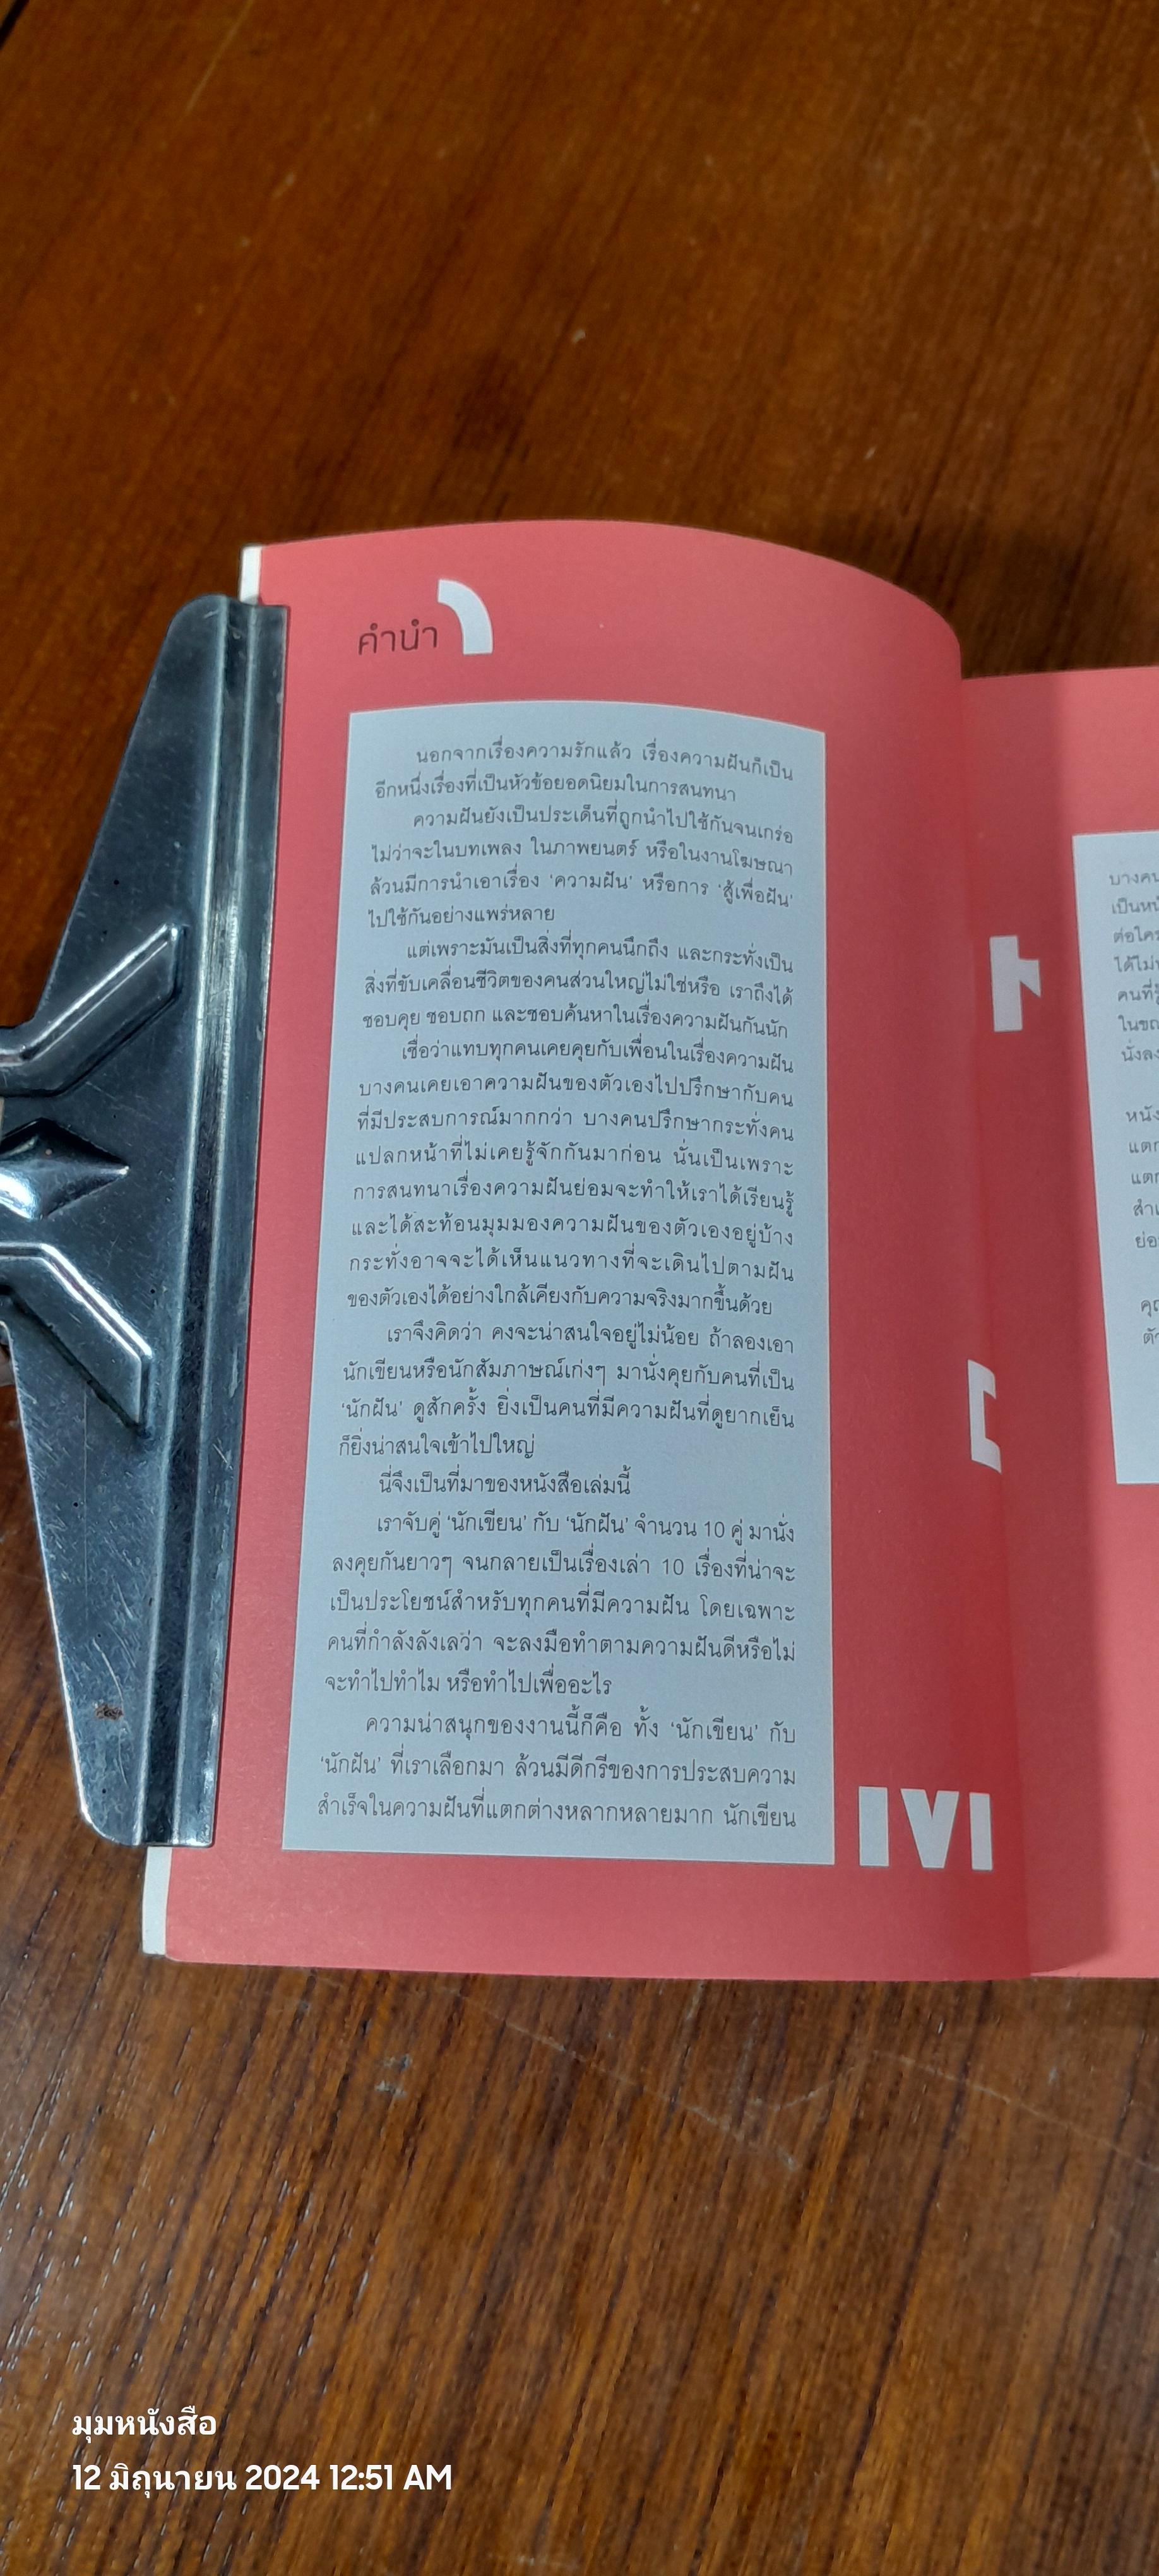 คำนำ
นอกจากเรื่องความรักแล้ว เรื่องความฝันก็เป็น
อีกหนึ่งเรื่องที่เป็นหัวข้อยอดนิยมในการสนทนา
ความฝันยังเป็นประเด็นที่ถูกนำไปใช้กันจนเกร่อ
ไม่ว่าจะในบทเพลง ในภาพยนตร์ หรือในงานโฆษณา
ล้วนมีการนำเอาเรื่อง ‘ความฝัน’ หรือการ ‘สู้เพื่อฝัน’
ไปใช้กันอย่างแพร่หลาย
แต่เพราะมันเป็นสิ่งที่ทุกคนนึกถึง และกระทั่งเป็น
สิ่งที่ขับเคลื่อนชีวิตของคนส่วนใหญ่ไม่ใช่หรือ เราถึงได้
ชอบคุย ชอบถก และชอบค้นหาในเรื่องความฝันกันนัก
เชื่อว่าแทบทุกคนเคยคุยกับเพื่อนในเรื่องความฝัน
บางคนเคยเอาความฝันของตัวเองไปปรึกษากับคน
ที่มีประสบการณ์มากกว่า บางคนปรึกษากระทั่งคน
แปลกหน้าที่ไม่เคยรู้จักกันมาก่อน นั่นเป็นเพราะ
การสนทนาเรื่องความฝันย่อมจะทำให้เราได้เรียนรู้
และได้สะท้อนมุมมองความฝันของตัวเองอยู่บ้าง
กระทั่งอาจจะได้เห็นแนวทางที่จะเดินไปตามฝัน
ของตัวเองได้อย่างใกล้เคียงกับความจริงมากขึ้นด้วย
เราจึงคิดว่า คงจะน่าสนใจอยู่ไม่น้อย ถ้าลองเอา
นักเขียนหรือนักสัมภาษณ์เก่งๆ มานั่งคุยกับคนที่เป็น
‘นักฝัน’ ดูสักครั้ง ยิ่งเป็นคนที่มีความฝันที่ดูยากเย็น
ก็ยิ่งน่าสนใจเข้าไปใหญ่
นี่จึงเป็นที่มาของหนังสือเล่มนี้
เราจับคู่ ‘นักเขียน’ กับ ‘นักฝัน’ จำนวน 10 คู่ มานั่ง
ลงคุยกันยาวๆ จนกลายเป็นเรื่องเล่า 10 เรื่องที่น่าจะ
เป็นประโยชน์สำหรับทุกคนที่มีความฝัน โดยเฉพาะ
คนที่กำลังลังเลว่า จะลงมือทำตามความฝันดีหรือไม่
จะทำไปทำไม หรือทำไปเพื่ออะไร
ความน่าสนุกของงานนี้ก็คือ ทั้ง ‘นักเขียน’ กับ
‘นักฝัน’ ที่เราเลือกมา ล้วนมีดีกรีของการประสบความ
สำเร็จในความฝันที่แตกต่างหลากหลายมาก นักเขียน
มุมหนังสือ
12 มิถุนายน 2024 12:51 AM